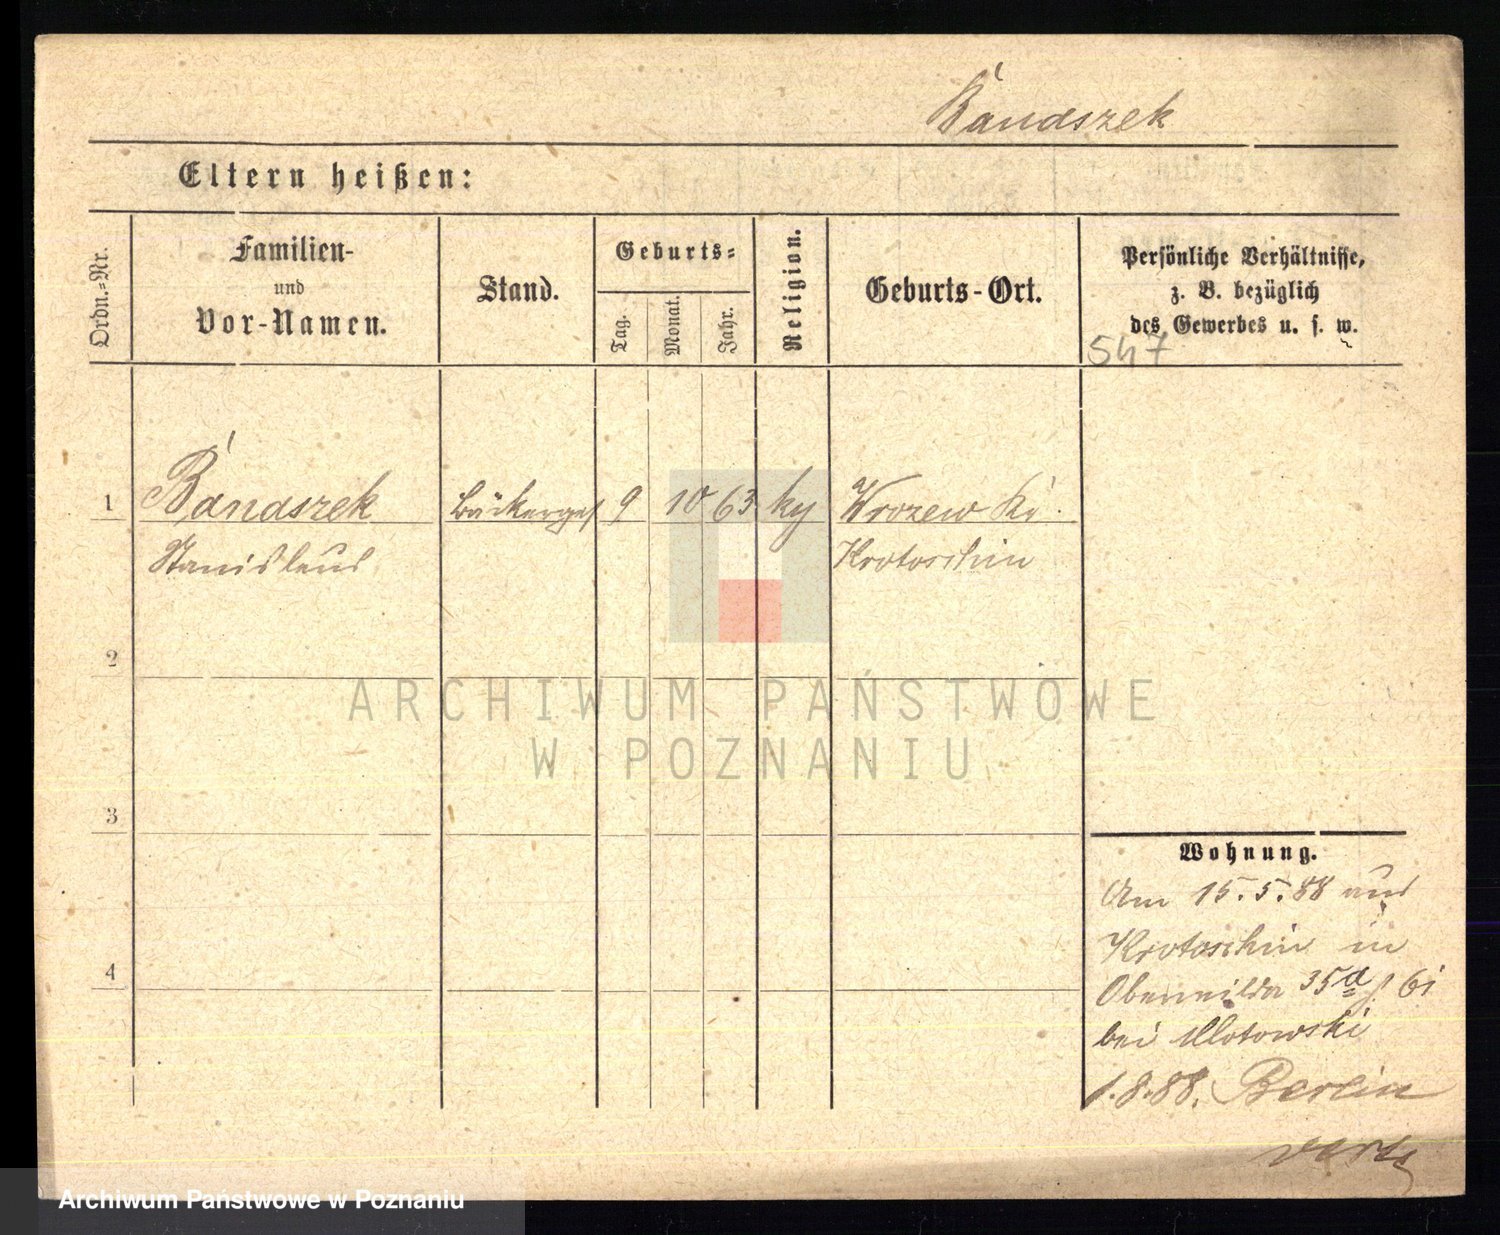 Bandszek
Eltern heißen:
Ordn.-Nr.
Familien-
und
Vor-Namen.
Stand.
Geburts-
Tag.
Monat.
Jahr.
Religion.
Geburts-Ort.
Persönliche Verhältnisse,
z. B. bezüglich
des Gewerbes u. s. w.
547
1 Bandszek Bäckerges 9 10 63 Wrozew Kr.
Stanislaus Krotoschin
2
ARCHIWUM PAŃSTWOWE
W POZNANIU
3
Wohnung.
Am 15.5.88 aus
Krotoschin in
4
Oberwilda 35a
bei
1.8.88. Berlin
Archiwum Państwowe w Poznaniu